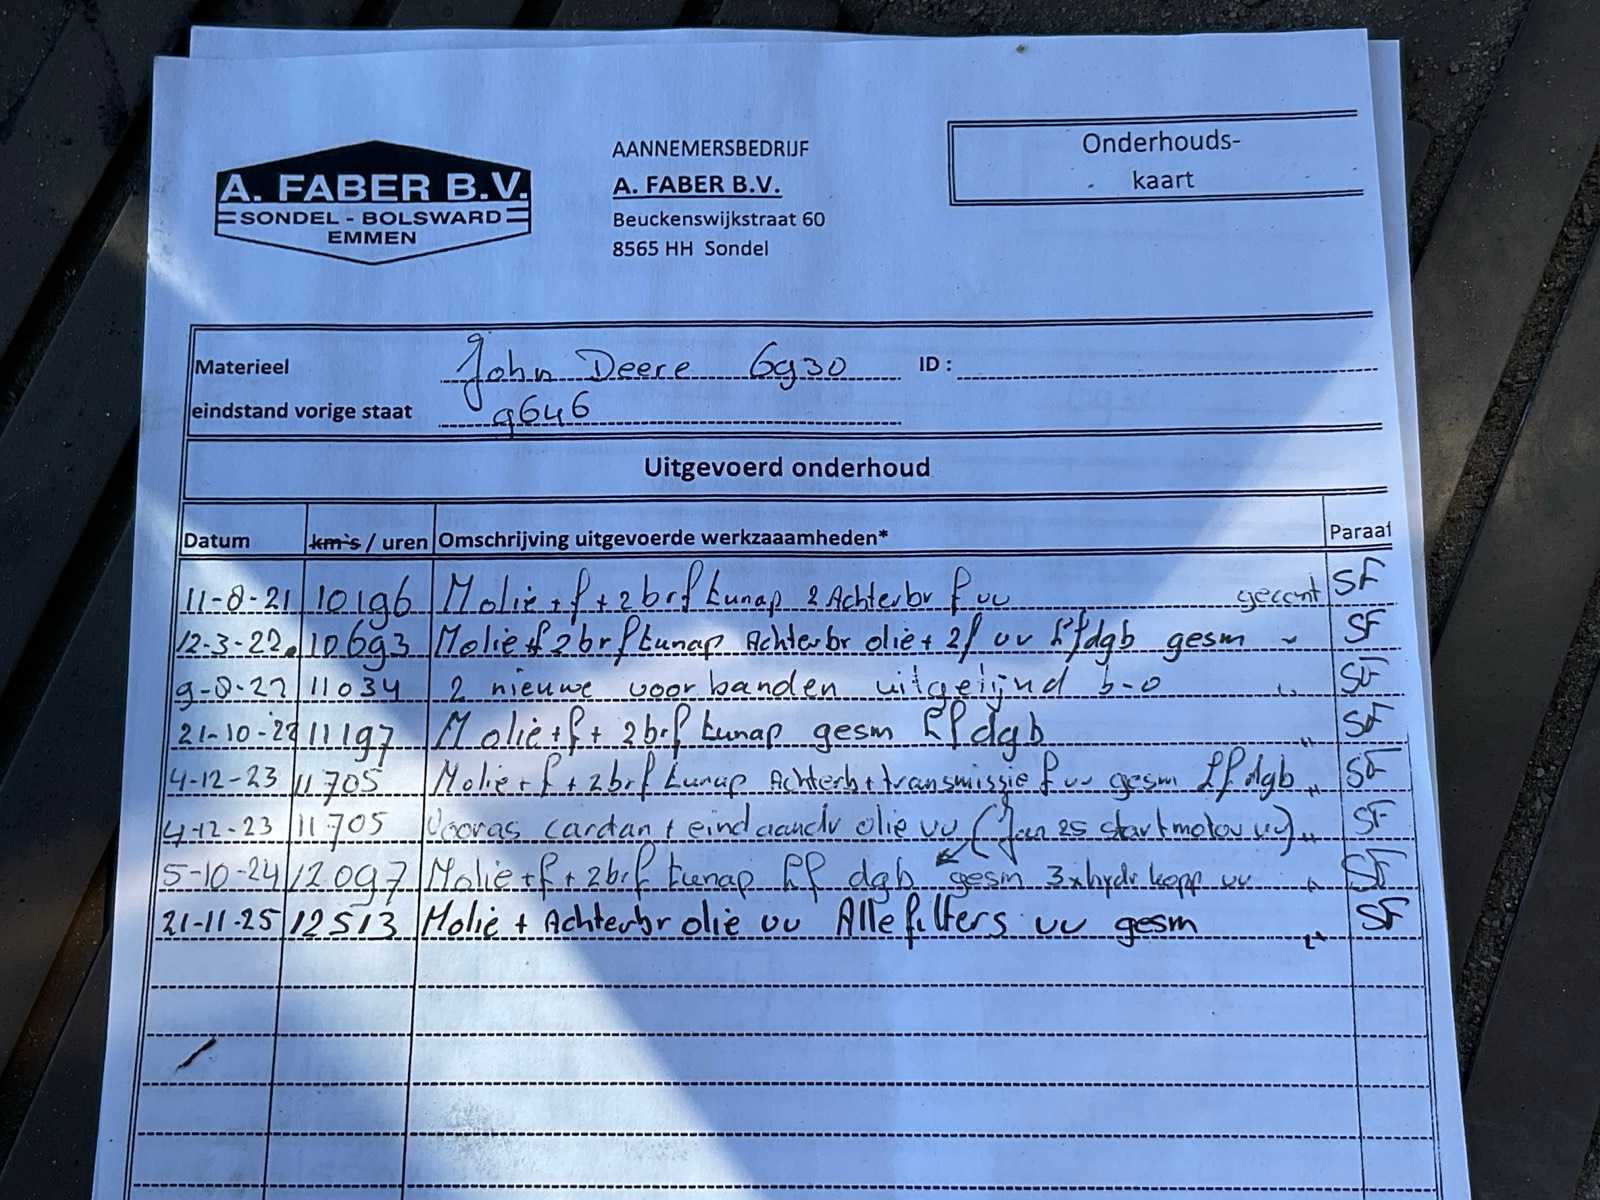 A. FABER B.V.
SONDEL - BOLSWARD
EMMEN
AANNEMERSBEDRIJF
A. FABER B.V.
Beuckenswijkstraat 60
8565 HH Sondel
Onderhouds-
kaart
Materieel John Deere 6930 ID :
eindstand vorige staat 9646
Uitgevoerd onderhoud
Datum km's / uren Omschrijving uitgevoerde werkzaaamheden* Paraaf
11-8-21 10196 Molie + f + 2 brf tunap 2 Achterbr f vv SF
12-3-22 10693 Molie + f 2 brf tunap Achterbr olie + 2f vv Lf dgb gesm " SF
9-8-22 11034 2 nieuwe voorbanden uitgelijnd b-o " SF
21-10-22 11197 Molie + f + 2 brf tunap gesm Lf dgb " SF
4-12-23 11705 Molie + f + 2 brf tunap Achterb + transmissie f vv gesm Lf dgb " SF
4-12-23 11705 Vooras cardan + eindaandr olie vv (Jan 25 startmotor vv) " SF
5-10-24 12097 Molie + f + 2 brf tunap Lf dgb gesm 3x hydr kopp vv " SF
21-11-25 12513 Molie + Achterbr olie vv Alle filters vv gesm " SF